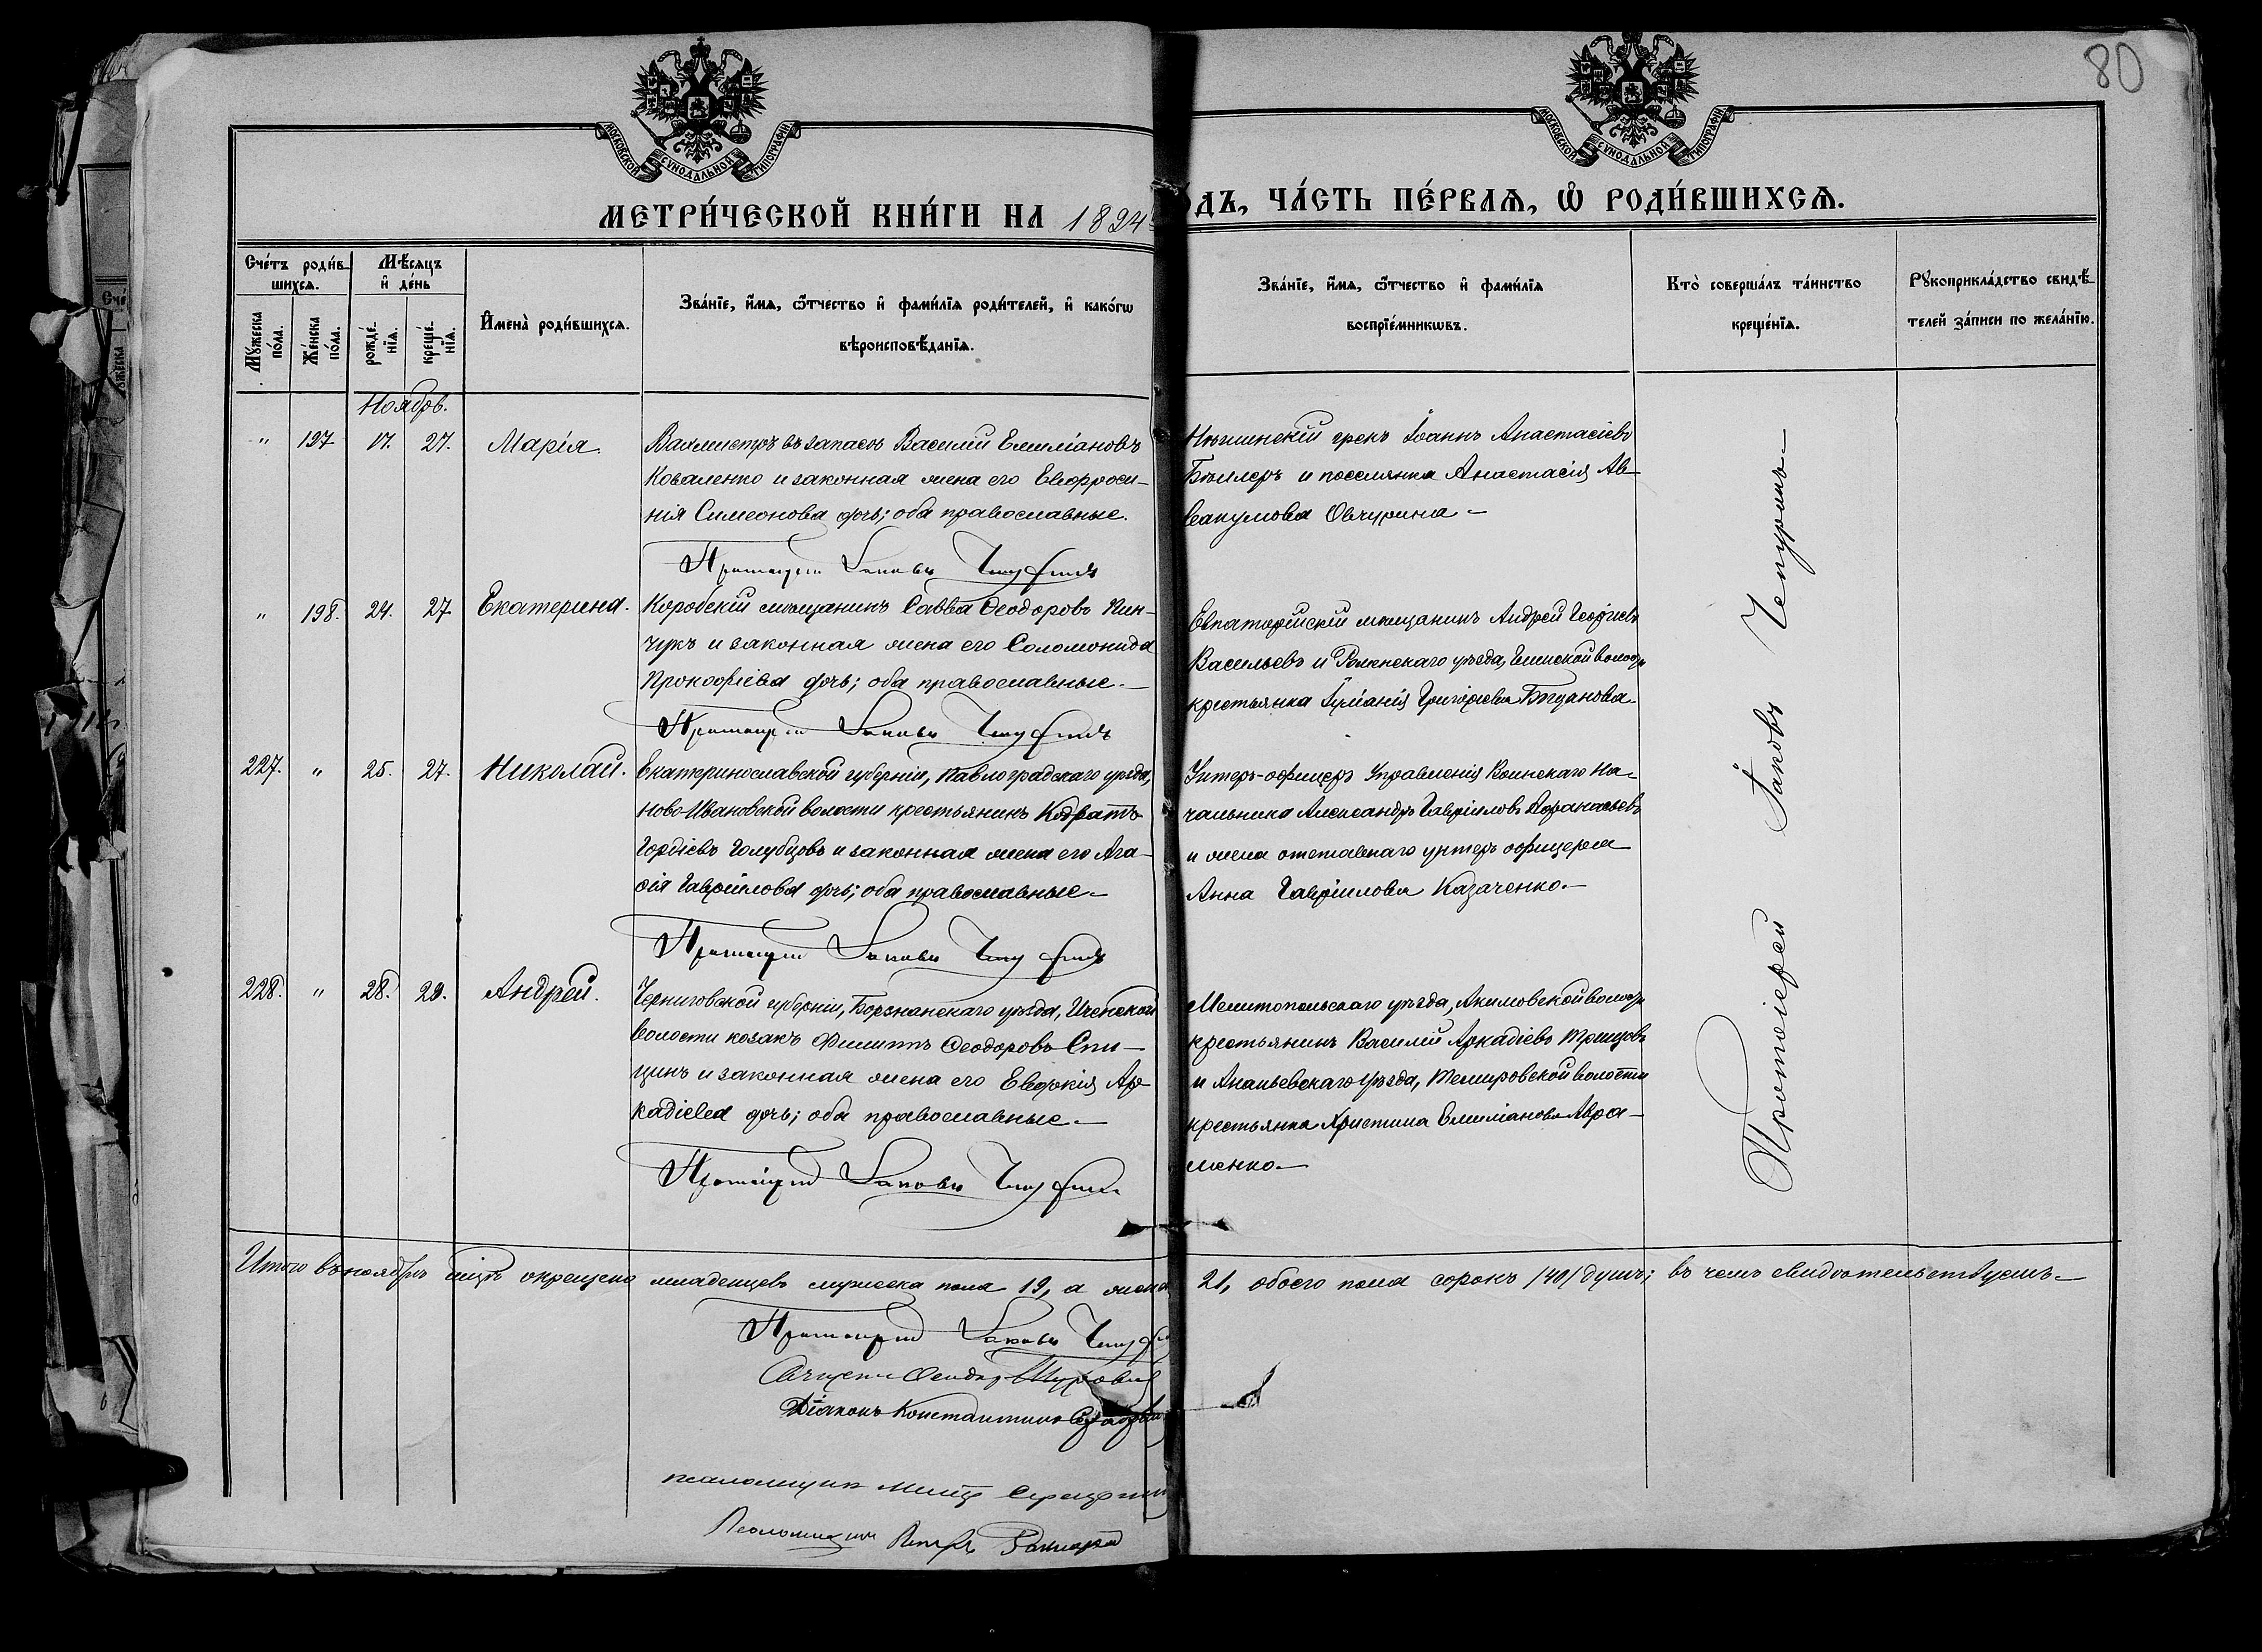 80
МОСКОВСКОЙ СѴНОДАЛЬНОЙ ТИПОГРАФІИ
МОСКОВСКОЙ СѴНОДАЛЬНОЙ ТИПОГРАФІИ
МЕТРИ́ЧЕСКОЙ КНИ́ГИ НА 1894 ОДЪ, ЧА́СТЬ ПЕ́РВАѦ, Ѽ РОДИ́ВШИХСѦ.
Сче́тъ роди́в-
шихсѧ.
Мѣ́сѧцъ
и҆ де́нь
Мꙋ́жеска
по́ла.
Же́нска
по́ла.
рожде́-
нїѧ.
креще́-
нїѧ.
И҆мена̀ роди́вшихсѧ.
Зва́нїе, и҆́мѧ, ѻ҆́тчество и҆ фами́лїѧ роди́телей, и҆ како́гѡ
вѣроисповѣ́данїѧ.
Зва́нїе, и҆́мѧ, ѻ҆́тчество и҆ фами́лїѧ
воспрїе́мникѡвъ.
Кто̀ соверша́лъ та́инство
креще́нїѧ.
Рꙋкоприкла́дство свидѣ́-
телей за́писи по жела́нїю.
Ноябрь.
" 197 17. 27. Марія.
Вахмистръ въ запасѣ Василій Емиліановъ
Коваленко и законная жена его Евфроси-
нія Симеонова дочь; оба православные.
Протоіерей Іаковъ Чепуринъ
Нѣжинскій грекъ Іоаннъ Анастасіевъ
и поселянка Анастасія Ав-
вакумова Овчурина -
" 198. 24. 27 Екатерина.
Коробскій мѣщанинъ Савва Ѳеодоровъ Пин-
чукъ и законная жена его Соломонида
Прокофіева дочь; оба православные. -
Протоіерей Іаковъ Чепуринъ
Евпаторійскій мѣщанинъ Андрей Георгіевъ
Васильевъ и уѣзда, волости
крестьянка Іуліанія Григоріева Богданова.
227. " 25. 27. Николай.
Екатеринославской губерніи, Павлоградскаго уѣзда,
Ново-Ивановской волости крестьянинъ Кодратъ
Гордіевъ Голубцовъ и законная жена его Ага-
ѳія Гавріилова дочь; оба православные -
Протоіерей Іаковъ Чепуринъ
Унтеръ-офицеръ Управленія Воинскаго На-
чальника Александръ Гавріиловъ Аѳанасьевъ
и жена отставнаго унтеръ офицера
Анна Гавріилова Казаченко. -
228. " 28. 29. Андрей.
Черниговской губерніи, Борзнанскаго уѣзда, Иченской
волости козакъ Филиппъ Ѳеодоровъ Спи-
цинъ и законная жена его Евдокія Ар-
кадіева дочь; оба православные. -
Протоіерей Іаковъ Чепуринъ
Мелитопольскаго уѣзда, Акимовской волости
крестьянинъ Василій Аркадіевъ
и Ананьевскаго уѣзда, волости
крестьянка Христина Емиліанова Авра-
менко -
Протоіерей Іаковъ Чепуринъ -
Итого въ ноябрѣ мѣсяцѣ окрещено младенцевъ мужеска пола 19, а женска 21, обоего пола сорокъ /40/ душъ; въ чемъ свидѣтельствуемъ -
Протоіерей Іаковъ
Священ. Ѳеодор
Діаконъ Константинъ
псаломщик
Псаломщикъ Петръ